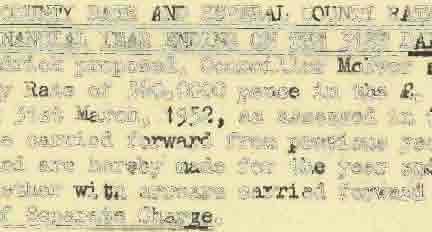 COUNTY RATE AND GENERAL COUNTY RATE
FINANCIAL YEAR ENDING ON THE 31ST MAR
proposal, Councillor McIver
y Rate of pence in the £
31st March, 1952, as assessed in
e carried forward from previous yea
ed are hereby made for the year end
ether with arrears carried forward
of Separate Charge.